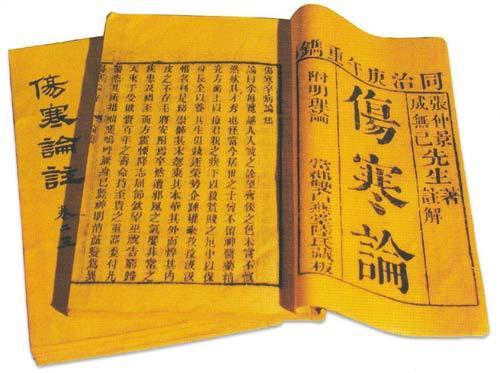 同治庚午重鐫
張仲景 著
成無己 先生 註解
傷寒論
附明理論
常郡雙白燕堂陸氏藏板
傷寒卒病論集
論曰余每覽越人入虢之診望齊侯之色未嘗不慨
然歎其才秀也怪當今居世之士曾不留神醫藥精
究方術上以療君親之疾下以救貧賤之厄中以保
身長全以養其生但競逐榮勢企踵權豪孜孜汲汲
惟名利是務崇飾其末忽棄其本華其外而悴其內
皮之不存毛將安附焉卒然遭邪風之氣嬰非常之
疾患及禍至而方震慄降志屈節欽望巫祝告窮歸
天束手受敗賫百年之壽命持至貴之重器委付凡
醫恣其所措咄嗟嗚呼厥身已斃神明消滅變為異
傷寒論註
卷二三